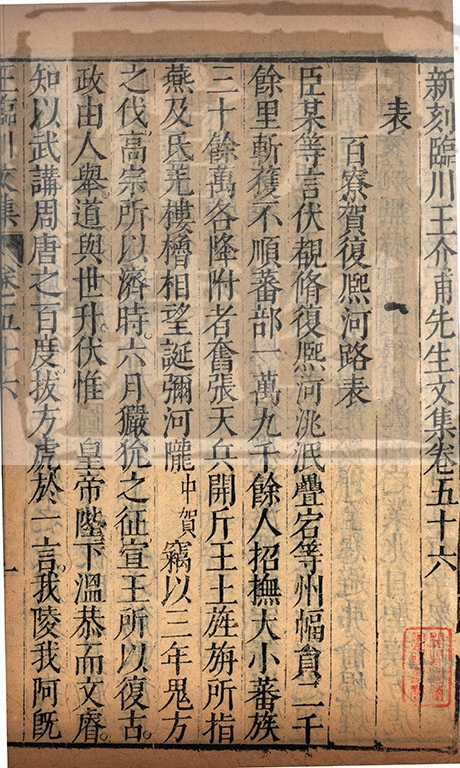 新刻臨川王介甫先生文集卷五十六
表
百寮賀復熈河路表
臣某等言伏覩脩復熈河洮泯疊宕等州幅負二千
餘里斬獲不順蕃部一萬九千餘人招撫大小蕃族
三十餘萬各降附者奮張天兵開斥王土旌旃所指
燕及氐羌樓櫓相望誕彌河隴中賀竊以三年鬼方
之伐高宗所以濟時六月玁狁之征宣王所以復古
政由人舉道與世升伏惟 皇帝陛下溫恭而文睿
知以武講周唐之百度拔方虎於一言我陵我阿既
王臨川文集 卷五十六 一